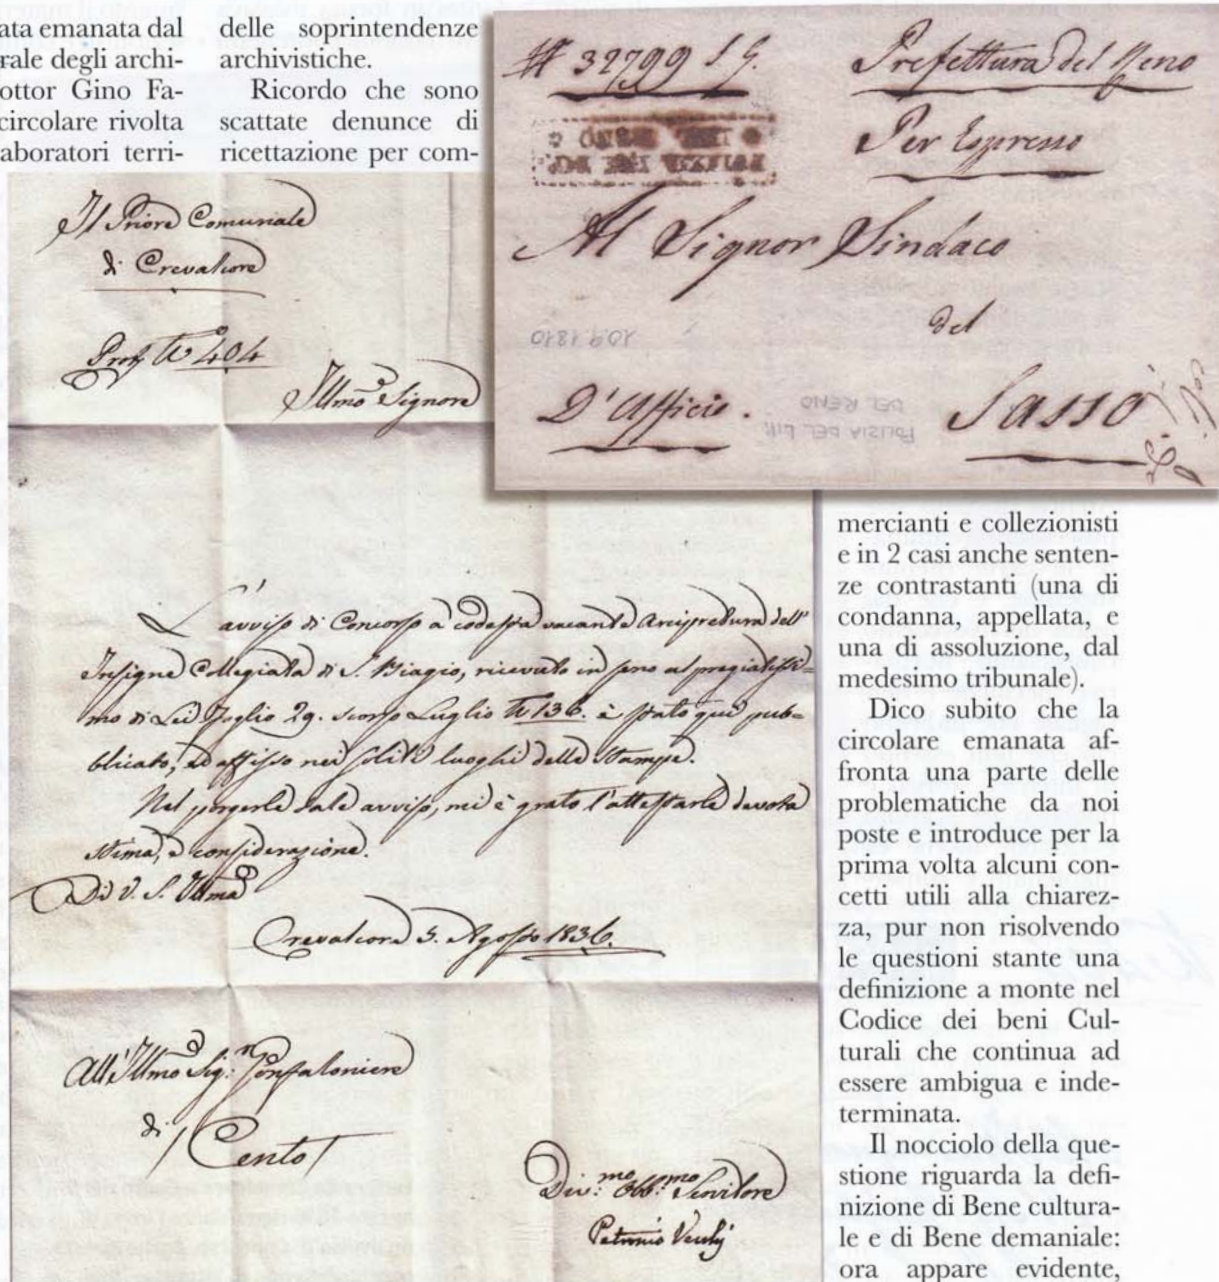 ata emanata dal
rale degli archi-
ottor Gino Fa-
circolare rivolta
laboratori terri-
delle soprintendenze
archivistiche.
Ricordo che sono
scattate denunce di
ricettazione per com-
# 32799 S G.
Prefettura del Reno
Per Espresso
Al Signor Sindaco
del
20.9.1810
D'Ufficio.
DEL RENO
POLIZIA DEL DIP.
Sasso
Il Priore Comunale
di Crevalcore
Prot. N° 404
Illmo Signore
L'avviso di Concorso a codesta vacante Arcipretura dell'
Insigne Collegiata di S. Biagio, ricevuto in seno al pregiatissi=
mo di Lei Foglio 29. scorso Luglio N° 136. è stato quì pub=
blicato, ed affisso nei soliti luoghi delle Stampe.
Nel porgerle tale avviso, mi è grato l'attestarle devota
stima, e considerazione.
Di V. S. Illma
Crevalcore 5. Agosto 1836.
All'Illmo Sig.r Gonfaloniere
di Cento
Div.mo Obb.mo Servitore
Petronio
mercianti e collezionisti
e in 2 casi anche senten-
ze contrastanti (una di
condanna, appellata, e
una di assoluzione, dal
medesimo tribunale).
Dico subito che la
circolare emanata af-
fronta una parte delle
problematiche da noi
poste e introduce per la
prima volta alcuni con-
cetti utili alla chiarez-
za, pur non risolvendo
le questioni stante una
definizione a monte nel
Codice dei beni Cul-
turali che continua ad
essere ambigua e inde-
terminata.
Il nocciolo della que-
stione riguarda la defi-
nizione di Bene cultura-
le e di Bene demaniale:
ora appare evidente,